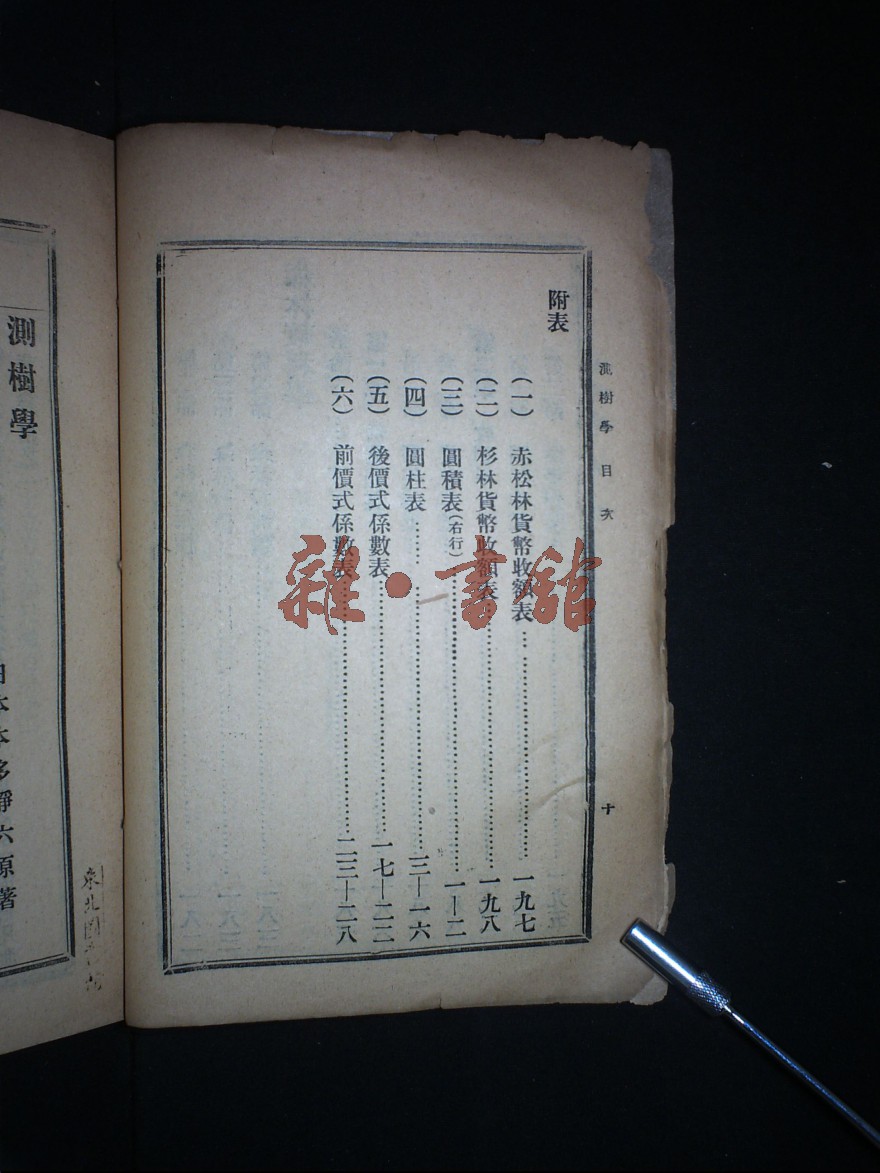 測樹學 目次
十
附表
(一) 赤松林貨幣收額表……………………一九七
(二) 杉林貨幣收額表……………………一九八
(三) 圓積表(右行)……………………一—二
(四) 圓柱表……………………三—一六
(五) 後價式係數表……………………一七—二二
(六) 前價式係數表……………………二三—二八
雜·書館
測樹學
日本本多靜六原著
東北圖